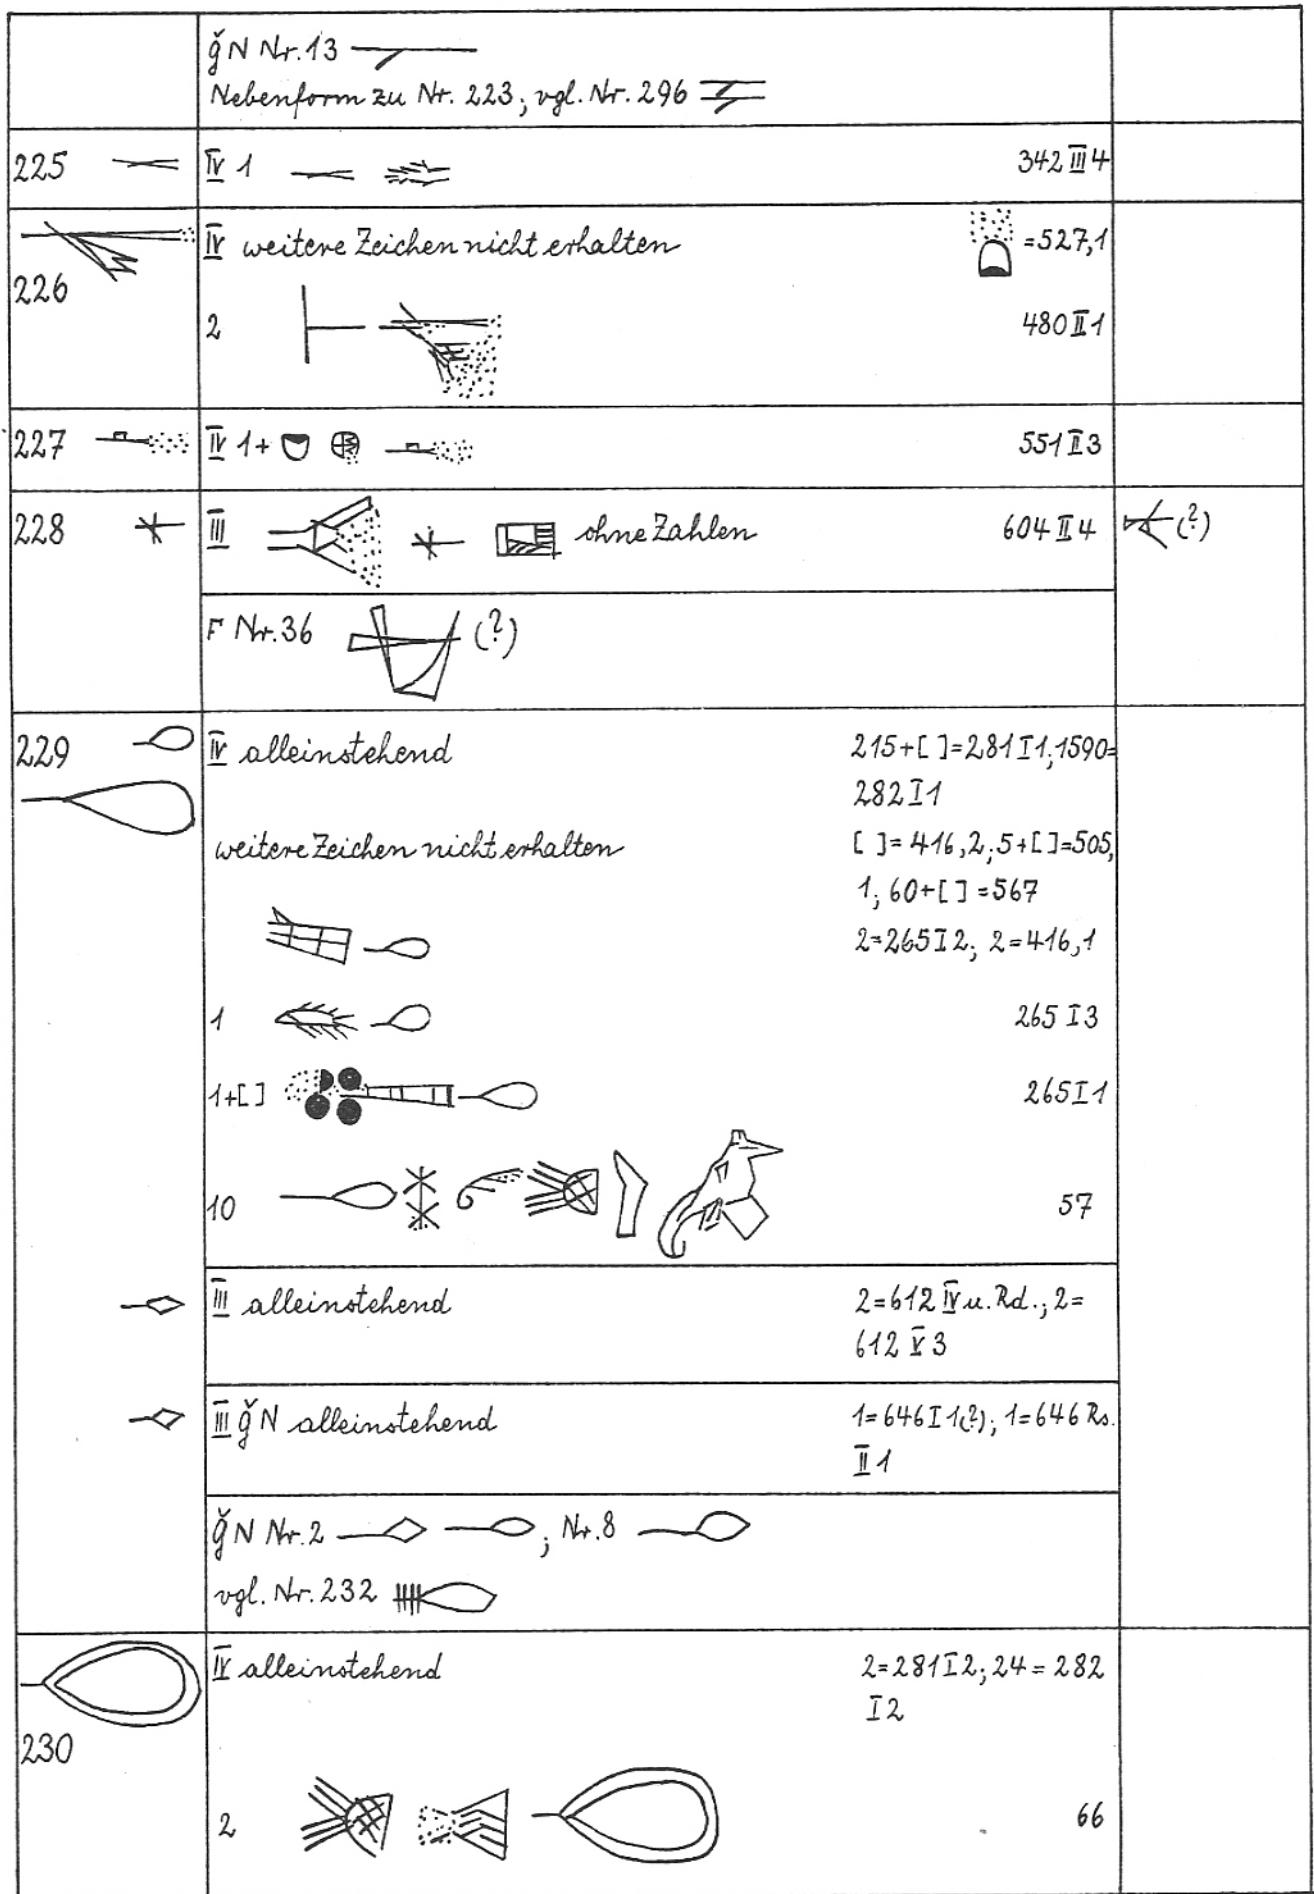 ǧN Nr. 13
Nebenform zu Nr. 223; vgl. Nr. 296
225 IV 1 342 III 4
IV weitere Zeichen nicht erhalten =527,1
226
2 480 II 1
227 IV 1+ 551 II 3
228 III ohne Zahlen 604 II 4 (?)
F Nr. 36 (?)
229 IV alleinstehend 215+[ ]=281 I 1; 1590=
282 I 1
weitere Zeichen nicht erhalten [ ]=416,2; 5+[ ]=505,
1; 60+[ ]=567
2=265 I 2; 2=416,1
1 265 I 3
1+[ ] 265 I 1
10 57
III alleinstehend 2=612 IV u. Rd.; 2=
612 V 3
III ǧN alleinstehend 1=646 I 1(?); 1=646 Rs.
II 1
ǧN Nr. 2 ; Nr. 8
vgl. Nr. 232
IV alleinstehend 2=281 I 2; 24=282
I 2
230
2 66